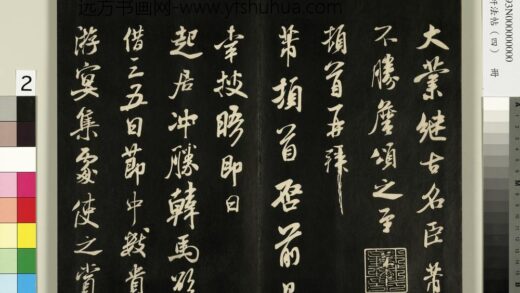 远方书画网-www.yfshuhua.com
大業继古名臣芾
不勝詹頌之至
頓首再拜
芾頓首啓前日
幸披晤即日
起居冲勝韓馬欲
借三五日節中數賞
游宴集處使之
2